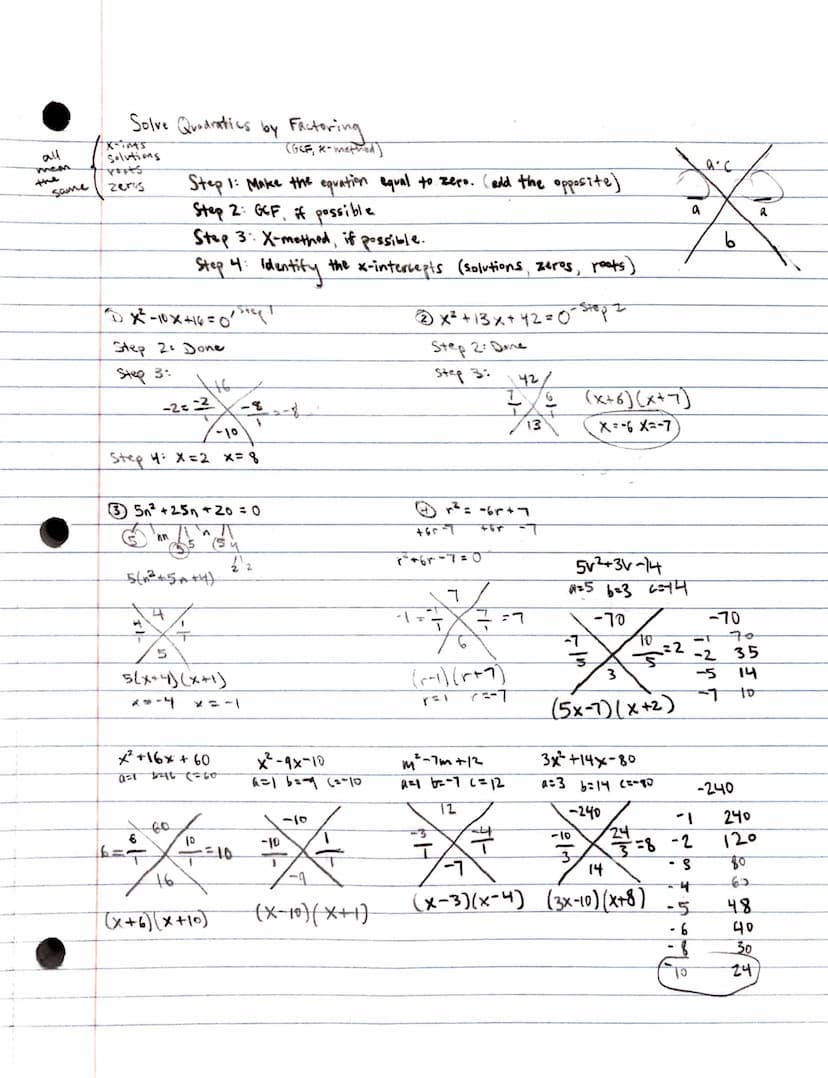 Solve Quadratics by Factoring
(GCF, X-method)
all mean the same
x-ints
solutions
roots
zeros
Step 1: Make the equation equal to zero. (add the opposite)
Step 2: GCF, if possible
Step 3: X-method, if possible.
Step 4: Identify the x-intercepts (solutions, zeros, roots)
a·c
a a
b
① x² -10x+16=0 Step 1
Step 2: Done
Step 3:
16
-2= -2/1 -8/1 =-8
-10
Step 4: x=2 x=8
② x² +13x+42=0 -Step 2
Step 2: Done
Step 3:
42
7/1 6/1
13
(x+6)(x+7)
x=-6 x=-7
③ 5n² +25n +20 = 0
5 nn 5 5 n 5 4
2 2
5(n²+5n+4)
4
4/1 1/1
5
5(x+4)(x+1)
x=-4 x=-1
④ r² = -6r+7
+6r-7 +6r -7
r²+6r-7=0
7
-1= -1/1 7/1 =7
6
(r-1)(r+7)
r=1 r=-7
5v²+3v-14
a=5 b=3 c=14
-70
-7/5 10/5 =2
3
(5x-7)(x+2)
-70
-1 70
-2 35
-5 14
-7 10
x² +16x + 60
a=1 b=16 c=60
60
6= 6/1 10/1 =10
16
(x+6)(x+10)
x² -9x-10
a=1 b=-9 c=-10
-10
-10/1 1/1
-9
(x-10)(x+1)
m²-7m+12
a=1 b=-7 c=12
12
-3/1 -4/1
-7
(x-3)(x-4)
3x²+14x-80
a=3 b=14 c=-80
-240
-10/3 24/3 =8
14
(3x-10)(x+8)
-240
-1 240
-2 120
-3 80
-4 60
-5 48
-6 40
-8 30
-10 24